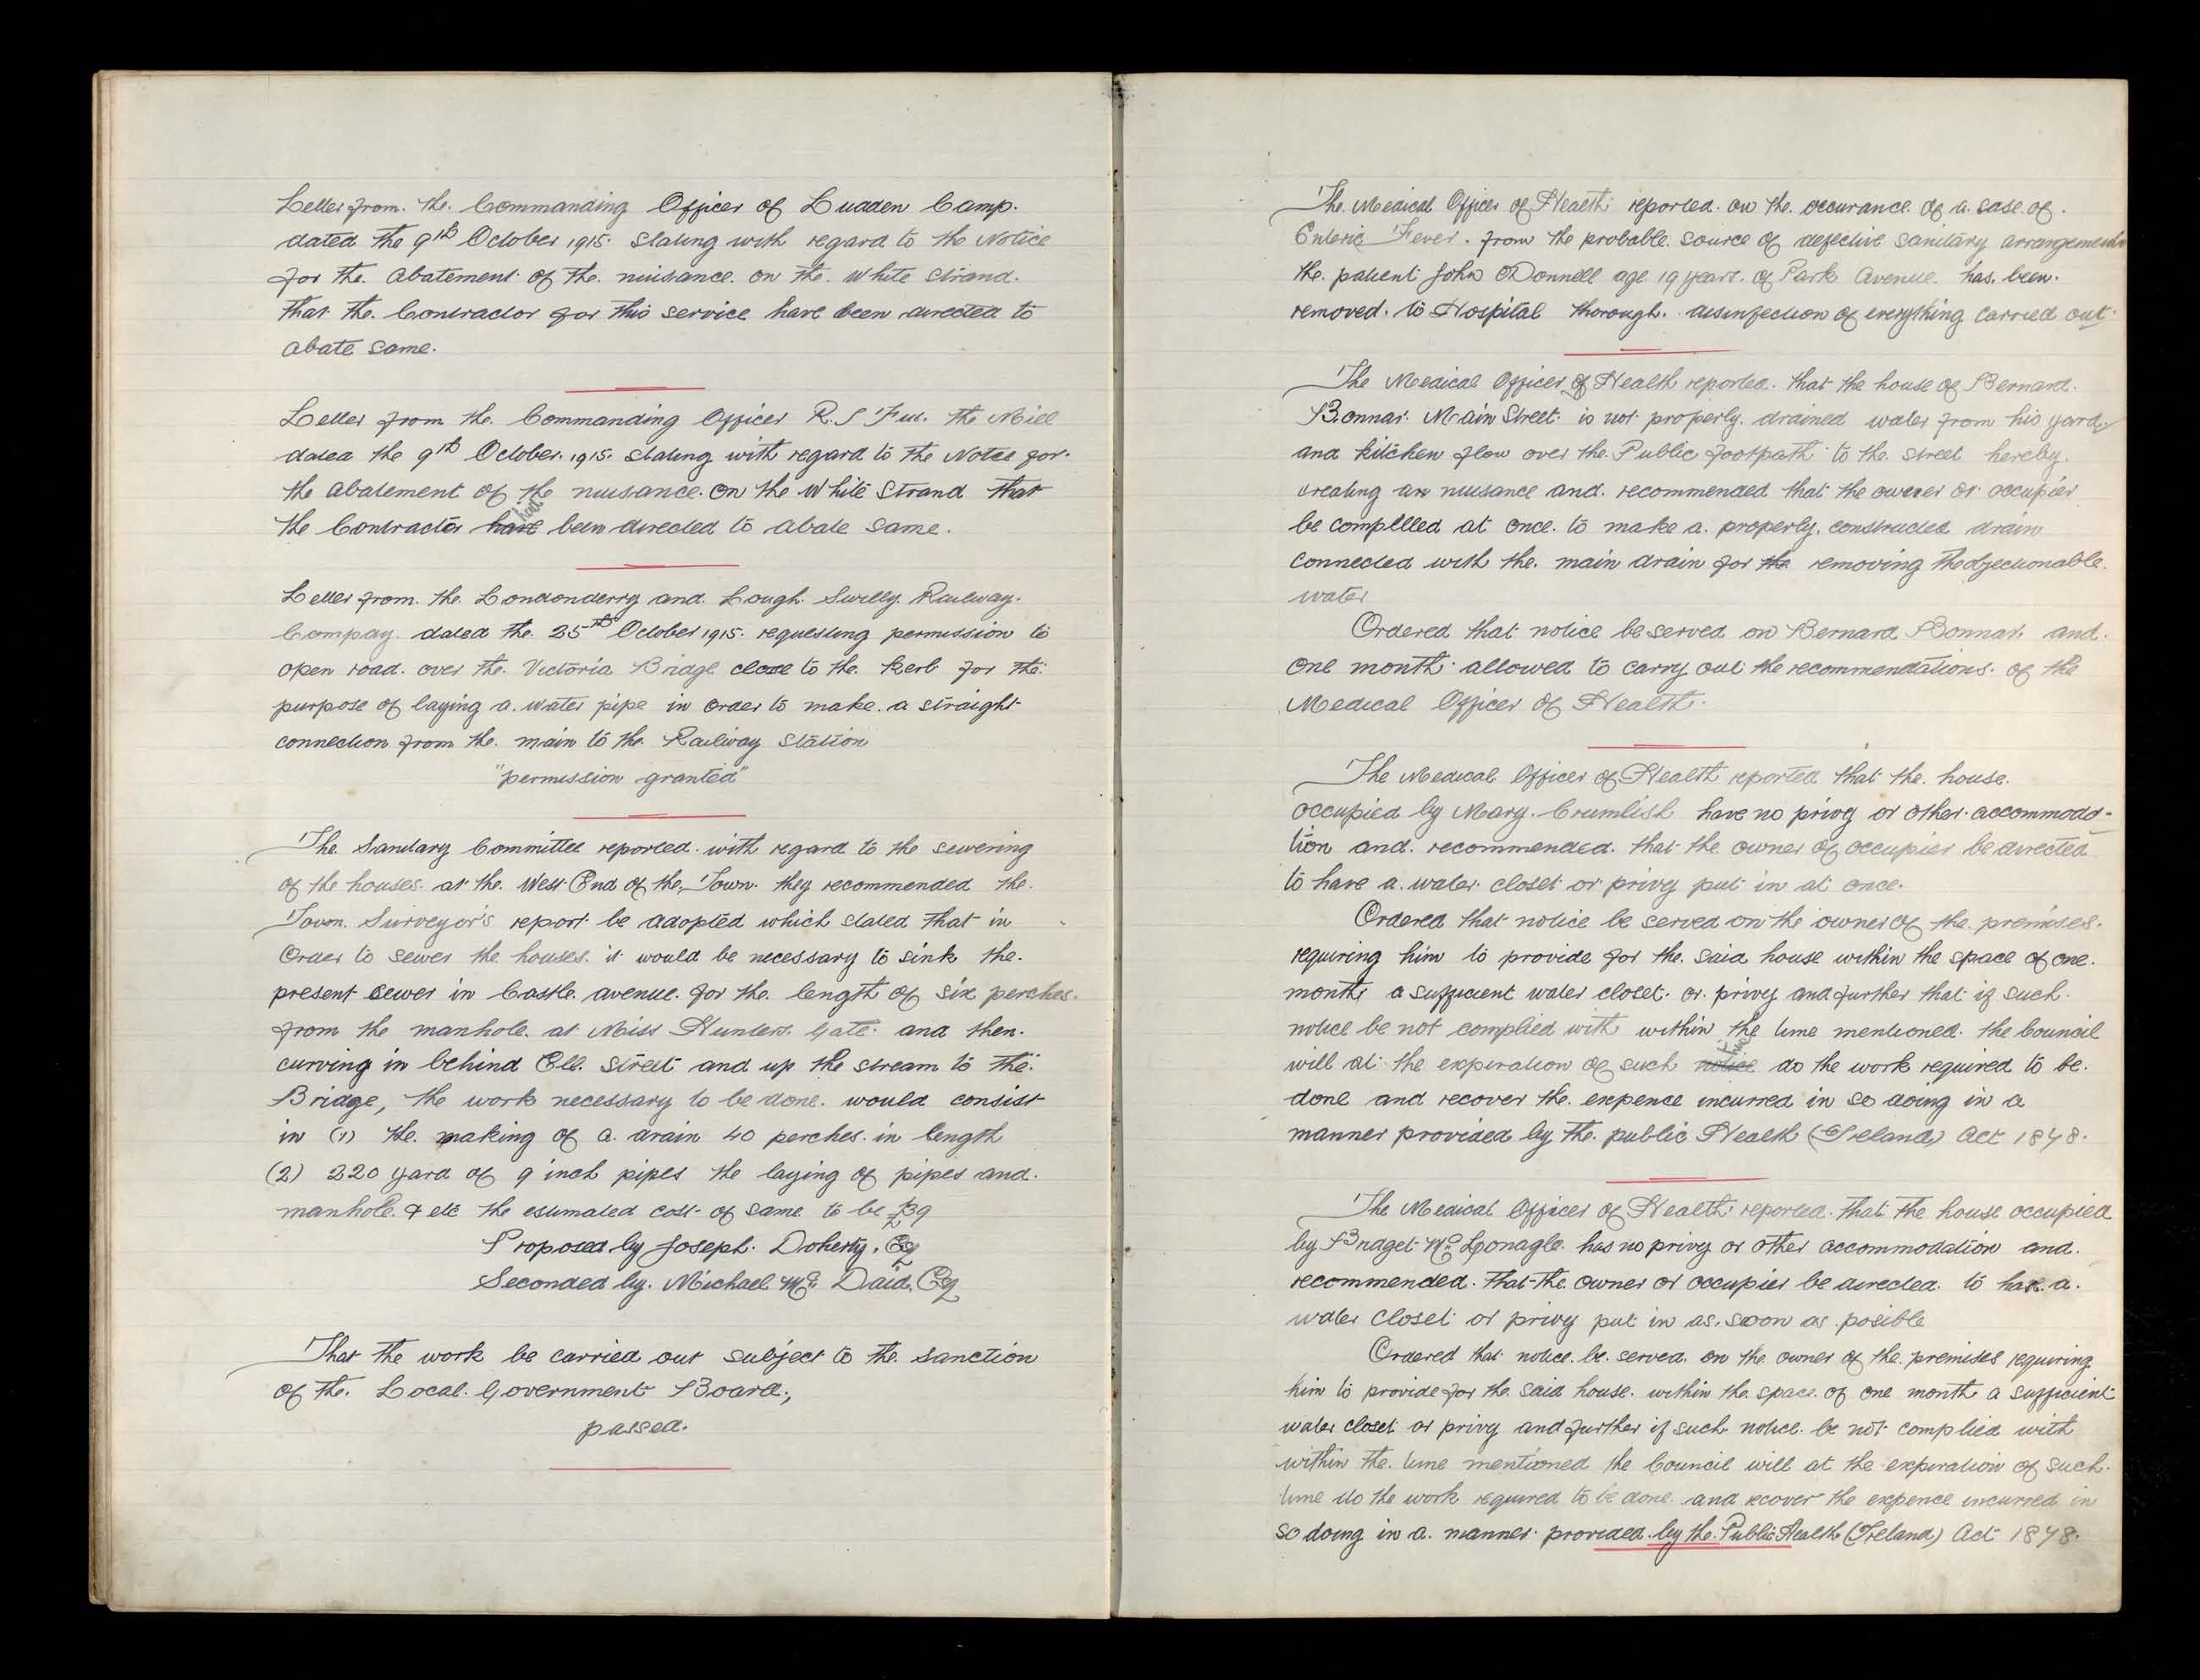 Letter from the Commanding Officer of Ludden Camp.
dated the 9th October 1915 stating with regard to the Notice
for the abatement of the nuisance on the White Strand.
that the Contractor for this service have been directed to
abate same.
Letter from the Commanding Officer R. I Fus. the Mill
dated the 9th October 1915. stating with regard to the Notce for
the abatement of the nuisance on the White Strand that
the Contractor have had been directed to abate same.
Letter from the Londonderry and Lough Swilly Railway
Compay dated the 25th October 1915. requesting permission to
open road over the Victoria Bridge close to the kerb for the
purpose of laying a water pipe in order to make a straight
connection from the main to the Railway Station
"permission granted"
The Sanitary Committee reported with regard to the sewering
of the houses at the West End of the Town. they recommended the
Town Surveyor's report be adopted which stated that in
Order to sewer the houses it would be necessary to sink the
present sewer in Castle avenue for the length of six perches
from the manhole at Miss Hunters Gate and then
curving in behind Street and up the stream to the
Bridge, the work necessary to be done would consist
in (1) the making of a drain 40 perches in length
(2) 220 yard of 9 inch pipes the laying of pipes and
manhole & etc the estimated cost of same to be £39
Proposed by Joseph Doherty. Esq
Seconded by Michael Mc Daid. Esq
That the work be carried out subject to the sanction
of the Local Government Board.,
passed.
The Medical Officer of Health reported on the occurance of a case of
Enteric Fever. from the probable source of defective sanitary arrangements
the patient John O'Donnell age 19 years of Park Avenue has been
removed to Hospital thorough disinfection of everything carried out
The Medical Officer of Health reported that the house of Bernard
Bonnar Main Street is not properly drained water from his yard
and kitchen flow over the Public footpath to the street hereby
creating an nuisance and recommended that the owener or occupier
be complled at once to make a properly constructed drain
connected with the main drain for the removing the objectionable
water
Ordered that notice be served on Bernard Bonnar and
one month allowed to carry out the recommendations of the
Medical Officer of Health.
The Medical Officer of Health reported that the house
occupied by Mary Crumlish have no privy or other accommoda-
tion and recommended that the owner of occupier be directed
to have a water closet or privy put in at once.
Ordered that notice be served on the owner of the premises
requiring him to provide for the said house within the space of one
month a sufficient water closet or privy and further that if such
notice be not complied with within the time mentioned the Council
will at the expiration of such notice time do the work required to be
done and recover the expence incurred in so doing in a
manner provided by the public Health (Ireland) Act 1878.
The Medical Officer of Health reported that the house occupied
by Bridget Mc Gonagle has no privy or other accommodation and
recommended that the owner or occupier be directed to have a
water closet or privy put in as soon as posible
Ordered that notice be served on the owner of the premises requiring
him to provide for the said house within the space of one month a sufficient
water closet or privy and further if such notice be not complied with
within the time mentioned the Council will at the expiration of such
time do the work required to be done and recover the expence incurred in
so doing in a manner provided by the Public Health (Ireland) Act 1878.